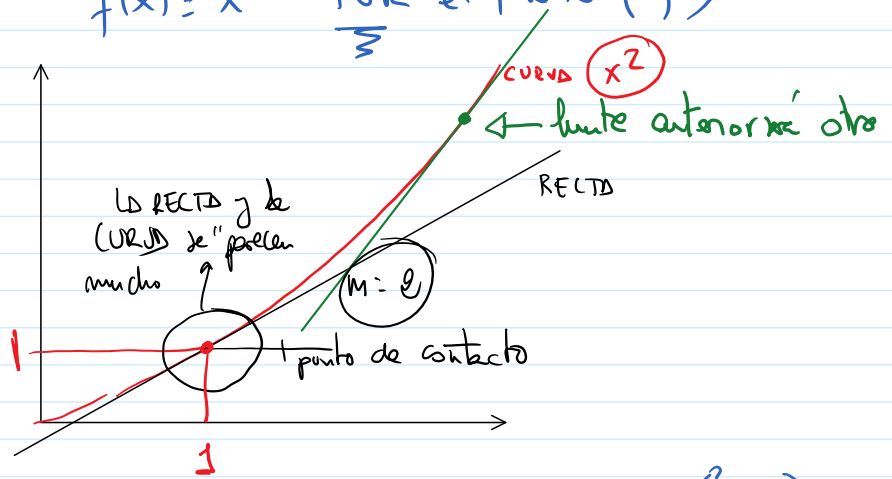 f(x) = x²
CURVA x²
límite anterior será otro
RECTA
LA RECTA y la
CURVA se "parecen
mucho
m = 2
1 punto de contacto
1
1